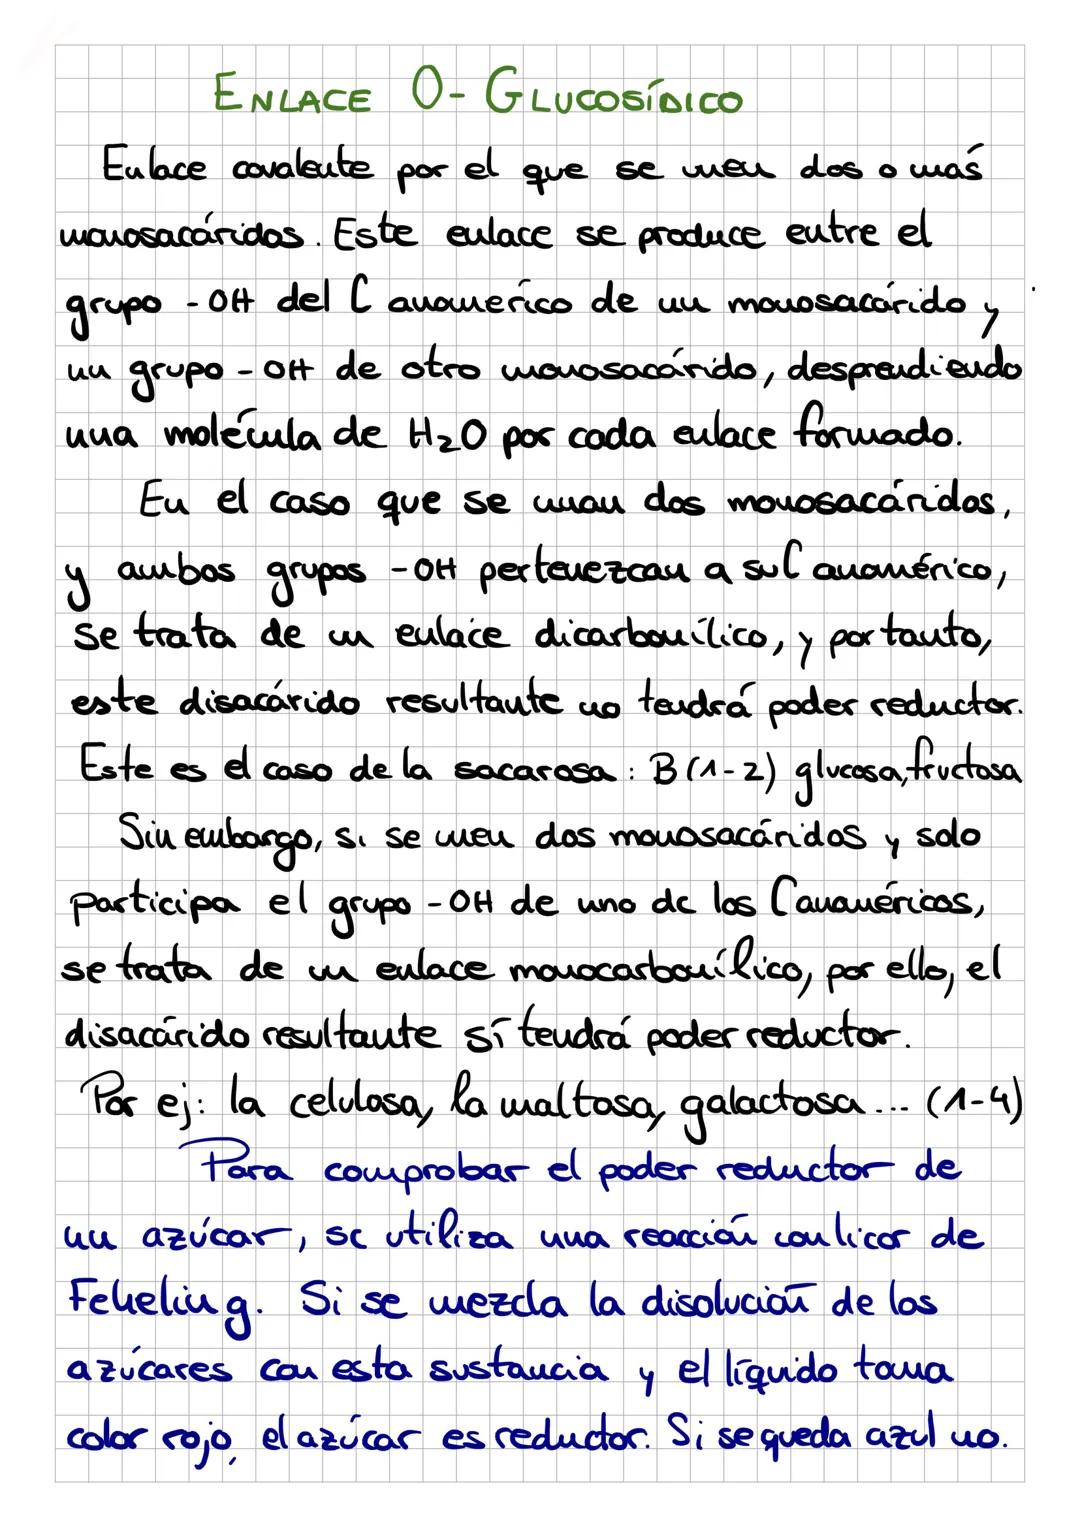 ENLACE O-GLUCOSÍDICO
Enlace covalente por el que se unen dos o más
monosacáridos. Este enlace se produce entre el
grupo -OH del C anomerico de un monosacárido y
un grupo -OH de otro monosacárido, desprendiendo
una molécula de H₂O por cada enlace formado.
En el caso que se unan dos monosacáridos,
y ambos grupos -OH pertenezcan a su C anomérico,
se trata de un enlace dicarbonílico, y por tanto,
este disacárido resultante no tendrá poder reductor.
Este es el caso de la sacarosa: B (1-2) glucosa, fructosa
Sin embargo, si se unen dos monosacáridos y solo
participa el grupo -OH de uno de los C anoméricos,
se trata de un enlace monocarbonílico, por ello, el
disacárido resultante sí tendrá poder reductor.
Por ej: la celulosa, la maltosa, galactosa... (1-4)
Para comprobar el poder reductor de
un azúcar, se utiliza una reacción con licor de
Feheling. Si se mezcla la disolución de los
azúcares con esta sustancia y el líquido toma
color rojo, el azúcar es reductor. Si se queda azul no.